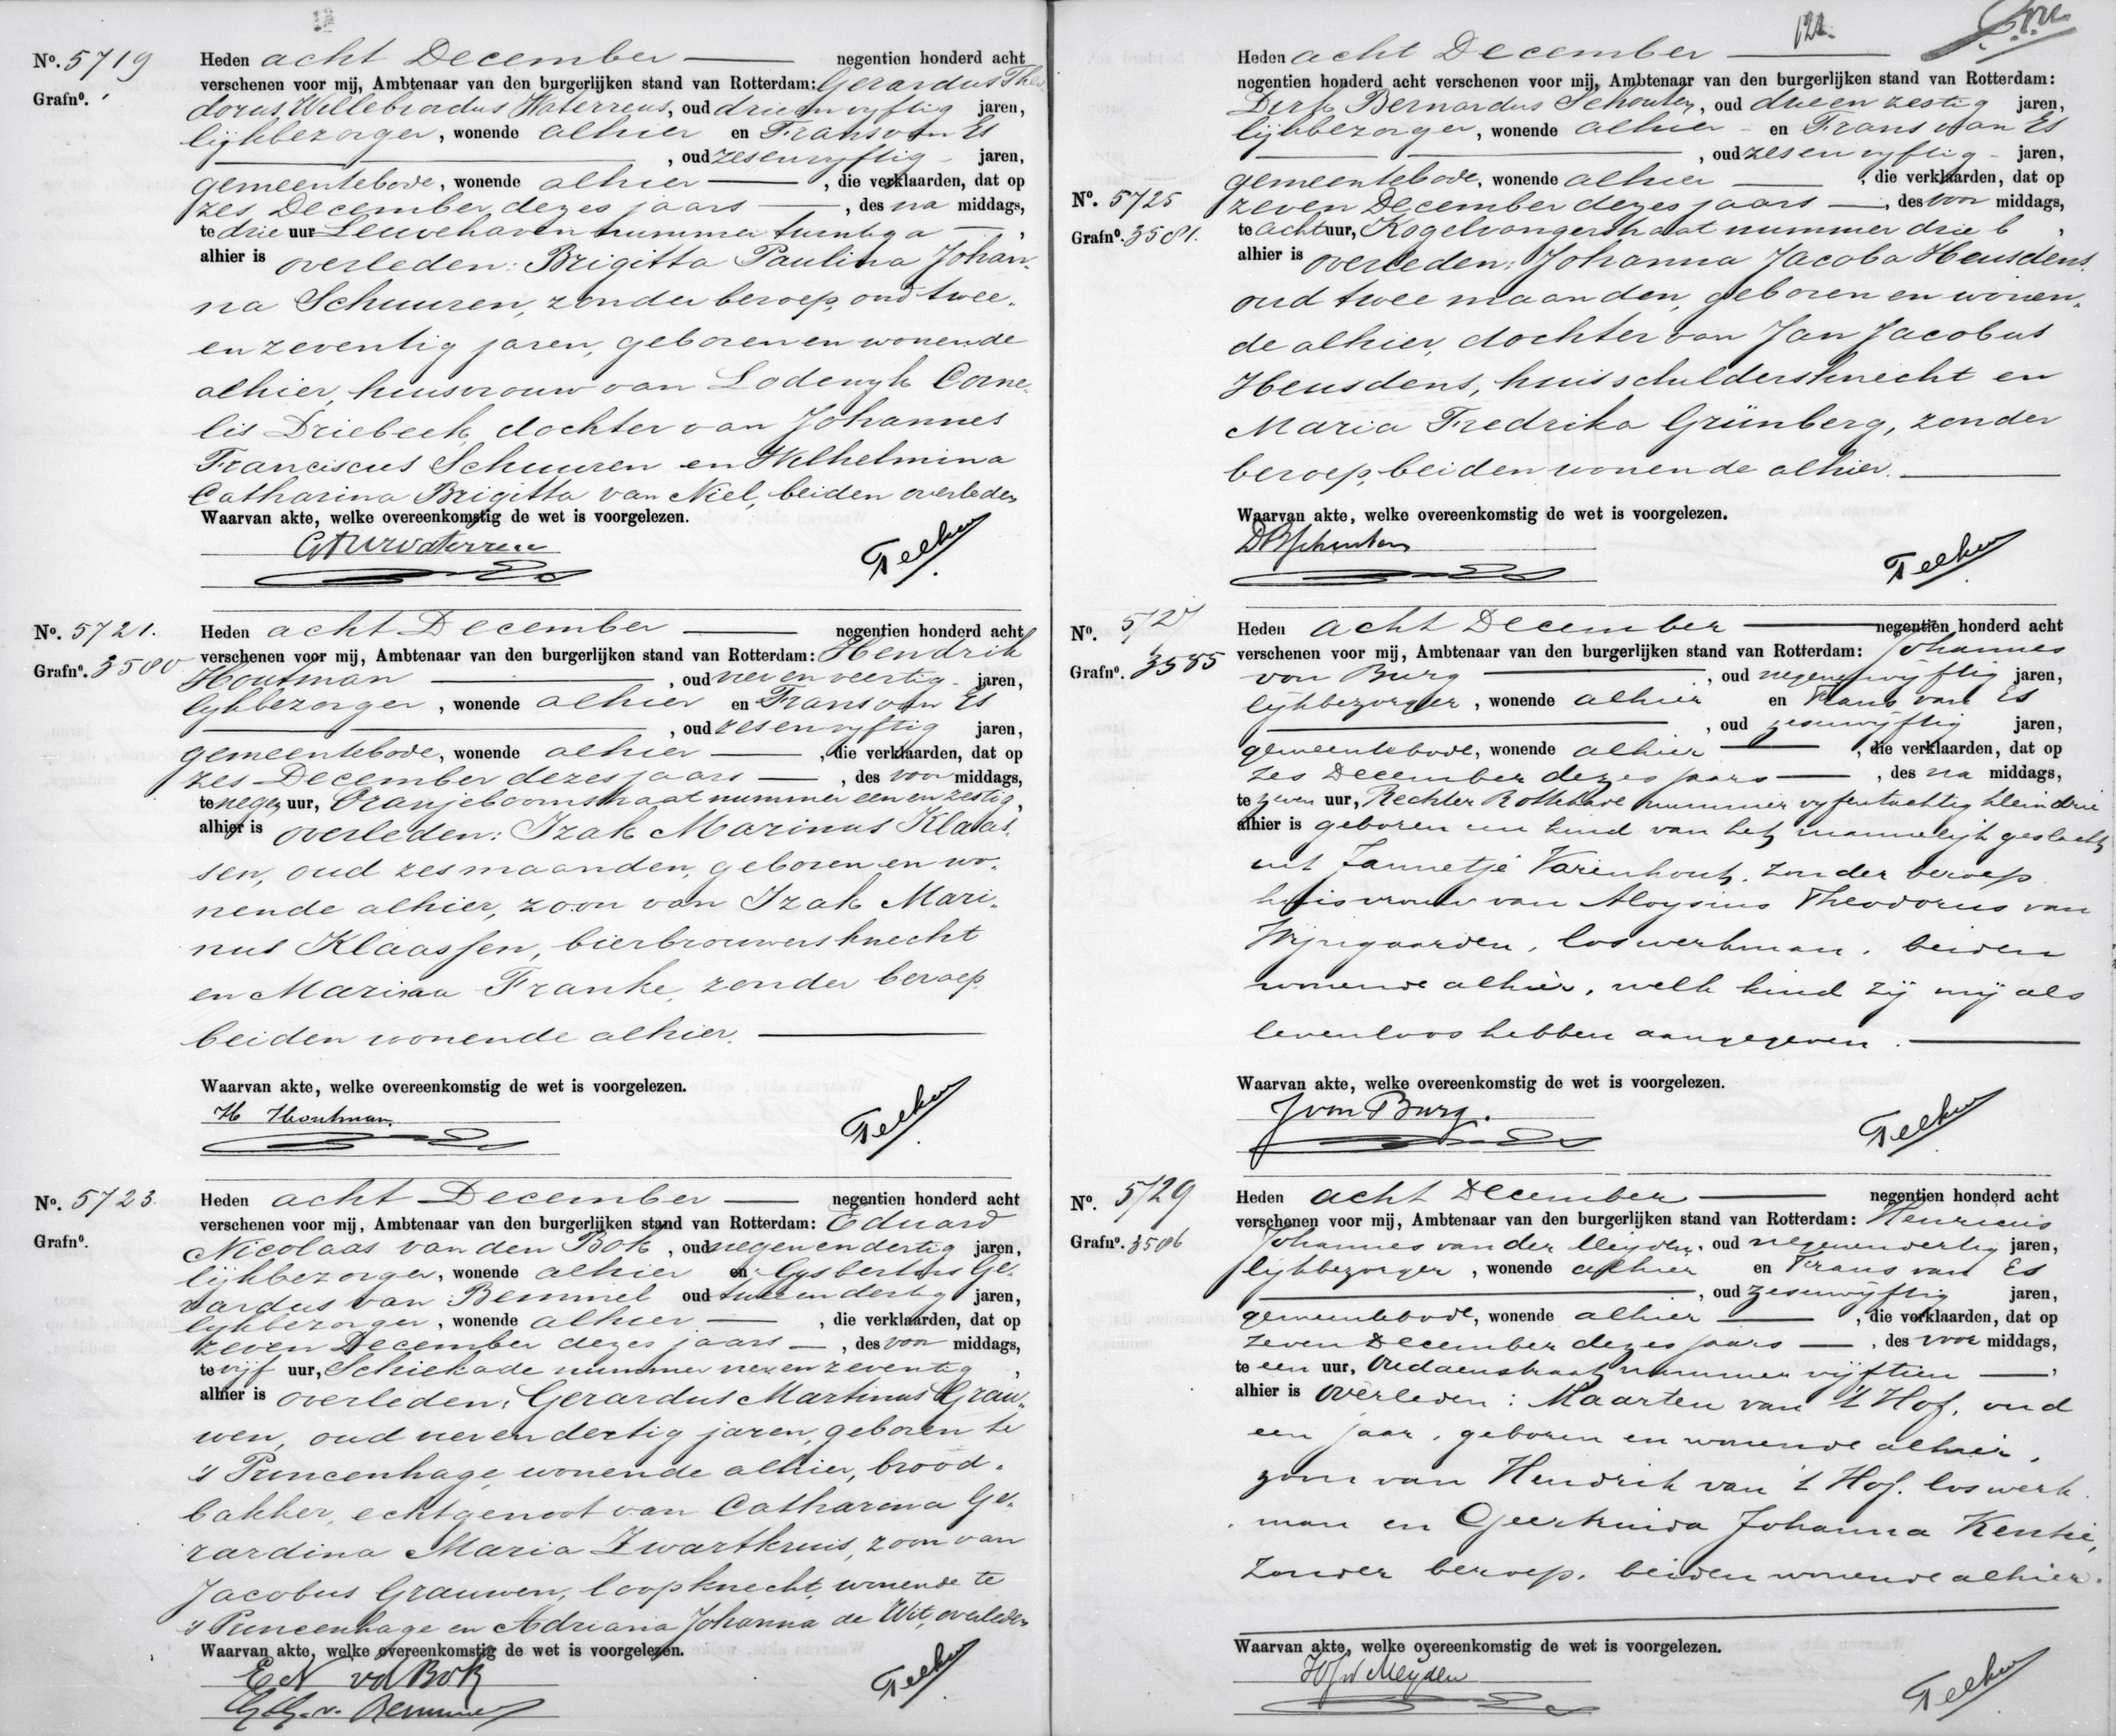 Nº. 5719
Grafnº.
Heden acht December negentien honderd acht
verschenen voor mij, Ambtenaar van den burgerlijken stand van Rotterdam: Gerardus Theo
dorus Willebrordus Waterreus, oud drieenvyftig jaren,
lijkbezorger, wonende alhier en Frans van Es
, oud zesenvyftig jaren,
gemeentebode, wonende alhier , die verklaarden, dat op
zes December dezes jaars , des na middags,
te drie uur Leuvehaven nummer twintig a ,
alhier is overleden: Brigitta Paulina Johan-
na Schuuren, zonder beroep, oud twee-
en zeventig jaren, geboren en wonende
alhier, huisvrouw van Lodewyk Corne-
lis Driebeek, dochter van Johannes
Franciscus Schuuren en Wilhelmina
Catharina Brigitta van Niel, beiden overleden
Waarvan akte, welke overeenkomstig de wet is voorgelezen.
Nº. 5721.
Grafnº. 3580
Heden acht December negentien honderd acht
verschenen voor mij, Ambtenaar van den burgerlijken stand van Rotterdam: Hendrik
Houtman , oud vier en veertig jaren,
lykbezorger, wonende alhier en Frans van Es
, oud zesenvyftig jaren,
gemeentebode, wonende alhier , die verklaarden, dat op
zes December dezes jaars , des voor middags,
te negen uur, Oranjeboomstraat nummer een en zestig,
alhier is overleden: Izak Marinus Klaas-
sen, oud zes maanden, geboren en wo-
nende alhier, zoon van Izak Mari-
nus Klaassen, bierbrouwersknecht
en Marina Franke, zonder beroep
beiden wonende alhier.
Waarvan akte, welke overeenkomstig de wet is voorgelezen.
H Houtman.
Nº. 5723.
Grafnº.
Heden acht December negentien honderd acht
verschenen voor mij, Ambtenaar van den burgerlijken stand van Rotterdam: Eduard
Nicolaas van den Bok, oud negenendertig jaren,
lijkbezorger, wonende alhier en Gysbertus Ge-
rardus van Bemmel oud tweeendertig jaren,
lykbezorger, wonende alhier , die verklaarden, dat op
zeven December dezes jaars , des voor middags,
te vijf uur, Schiekade nummer vierenzeventig ,
alhier is overleden: Gerardus Martinus Grau-
wen, oud vierendertig jaren, geboren te
's Princenhage, wonende alhier, brood-
bakker, echtgenoot van Catharina Ge-
rardina Maria Zwartkruis, zoon van
Jacobus Grauwen, loopknecht, wonende te
's Princenhage en Adriana Johanna de Wit, overleden
Waarvan akte, welke overeenkomstig de wet is voorgelezen.
E N vd Bok
G. G. v. Bemmel
121.
Nº. 5725
Grafnº. 3581.
Heden acht December
negentien honderd acht verschenen voor mij, Ambtenaar van den burgerlijken stand van Rotterdam:
Dirk Bernardus Schouten, oud drieen zestig jaren,
lijkbezorger, wonende alhier en Frans van Es
, oud zesenvyftig jaren,
gemeentebode, wonende alhier , die verklaarden, dat op
zeven December dezes jaars , des voor middags,
te acht uur, Kogelvangerstraat nummer drie b ,
alhier is overleden: Johanna Jacoba Heusdens,
oud twee maanden, geboren en wonen-
de alhier, dochter van Jan Jacobus
Heusdens, huisschildersknecht en
Maria Fredrika Grünberg, zonder
beroep, beiden wonende alhier.
Waarvan akte, welke overeenkomstig de wet is voorgelezen.
DBSchouten
Nº. 5727
Grafnº. 3585
Heden acht December negentien honderd acht
verschenen voor mij, Ambtenaar van den burgerlijken stand van Rotterdam: Johannes
von Burg , oud negenenvyftig jaren,
lijkbezorger, wonende alhier en Frans van Es
, oud zesenvijftig jaren,
gemeentebode, wonende alhier , die verklaarden, dat op
zes December dezes jaars , des na middags,
te zeven uur, Rechter Rottekade nummer vyfentachtig klein drie
alhier is geboren een kind van het mannelijk geslacht
uit Jannetje Varenhout, zonder beroep
huisvrouw van Aloysius Theodorus van
Wijngaarden, loswerkman, beiden
wonende alhier, welk kind zij mij als
levenloos hebben aangegeven.
Waarvan akte, welke overeenkomstig de wet is voorgelezen.
J von Burg.
Nº. 5729
Grafnº. 3586
Heden acht December negentien honderd acht
verschenen voor mij, Ambtenaar van den burgerlijken stand van Rotterdam: Henricus
Johannes van der Meyden, oud negenendertig jaren,
lijkbezorger, wonende alhier en Frans van Es
, oud zesenvijftig jaren,
gemeentebode, wonende alhier , die verklaarden, dat op
zeven December dezes jaars , des voor middags,
te een uur, Oudaenstraat nummer vijftien ,
alhier is overleden: Maarten van 't Hof, oud
een jaar, geboren en wonende alhier,
zoon van Hendrik van 't Hof, loswerk-
man en Geertruida Johanna Kentie,
zonder beroep, beiden wonende alhier.
Waarvan akte, welke overeenkomstig de wet is voorgelezen.
HJvdMeyden